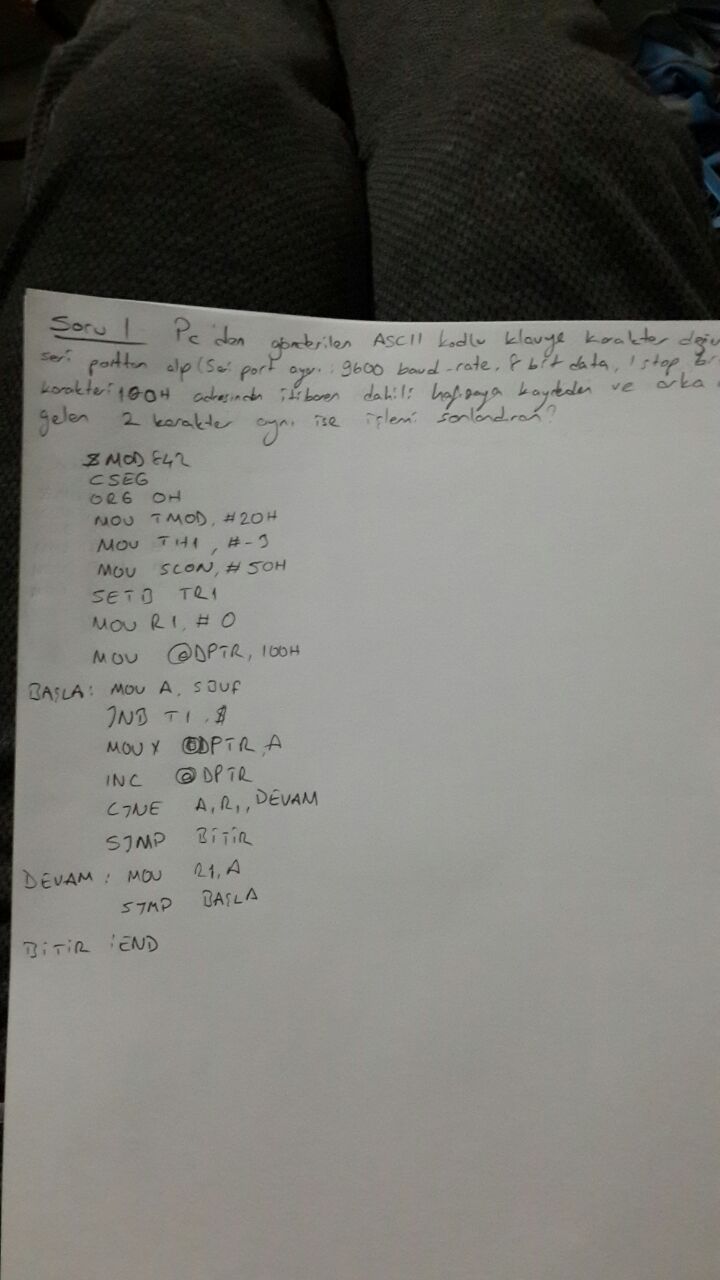 Soru 1 Pc'den gönderilen ASCII kodlu klavye karakter
seri porttan alıp (Seri port ayrı: 9600 baud-rate, 8 bit data, 1 stop
karakteri 100H adresinden itibaren dahili hafızaya kaydeden ve arka
gelen 2 karakter aynı ise işlemi sonlandıran?
$MOD 842
CSEG
ORG 0H
MOV TMOD, #20H
MOV TH1, #-3
MOV SCON, #50H
SETB TR1
MOV R1, #0
MOV @DPTR, 100H
BAŞLA: MOV A, SBUF
JNB TI, $
MOVX @DPTR, A
INC @DPTR
CJNE A, R1, DEVAM
SJMP BİTİR
DEVAM: MOV R1, A
SJMP BAŞLA
BİTİR :END